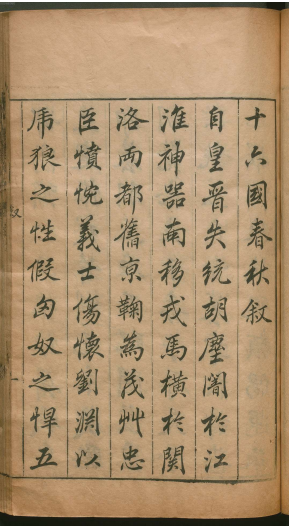 十六國春秋叙
自皇晉失統胡塵闇於江
淮神器南移戎馬橫於關
洛兩都舊亰鞠為茂艸忠
臣憤惋義士傷懷劉淵以
虎狼之性假匈奴之悍五
一